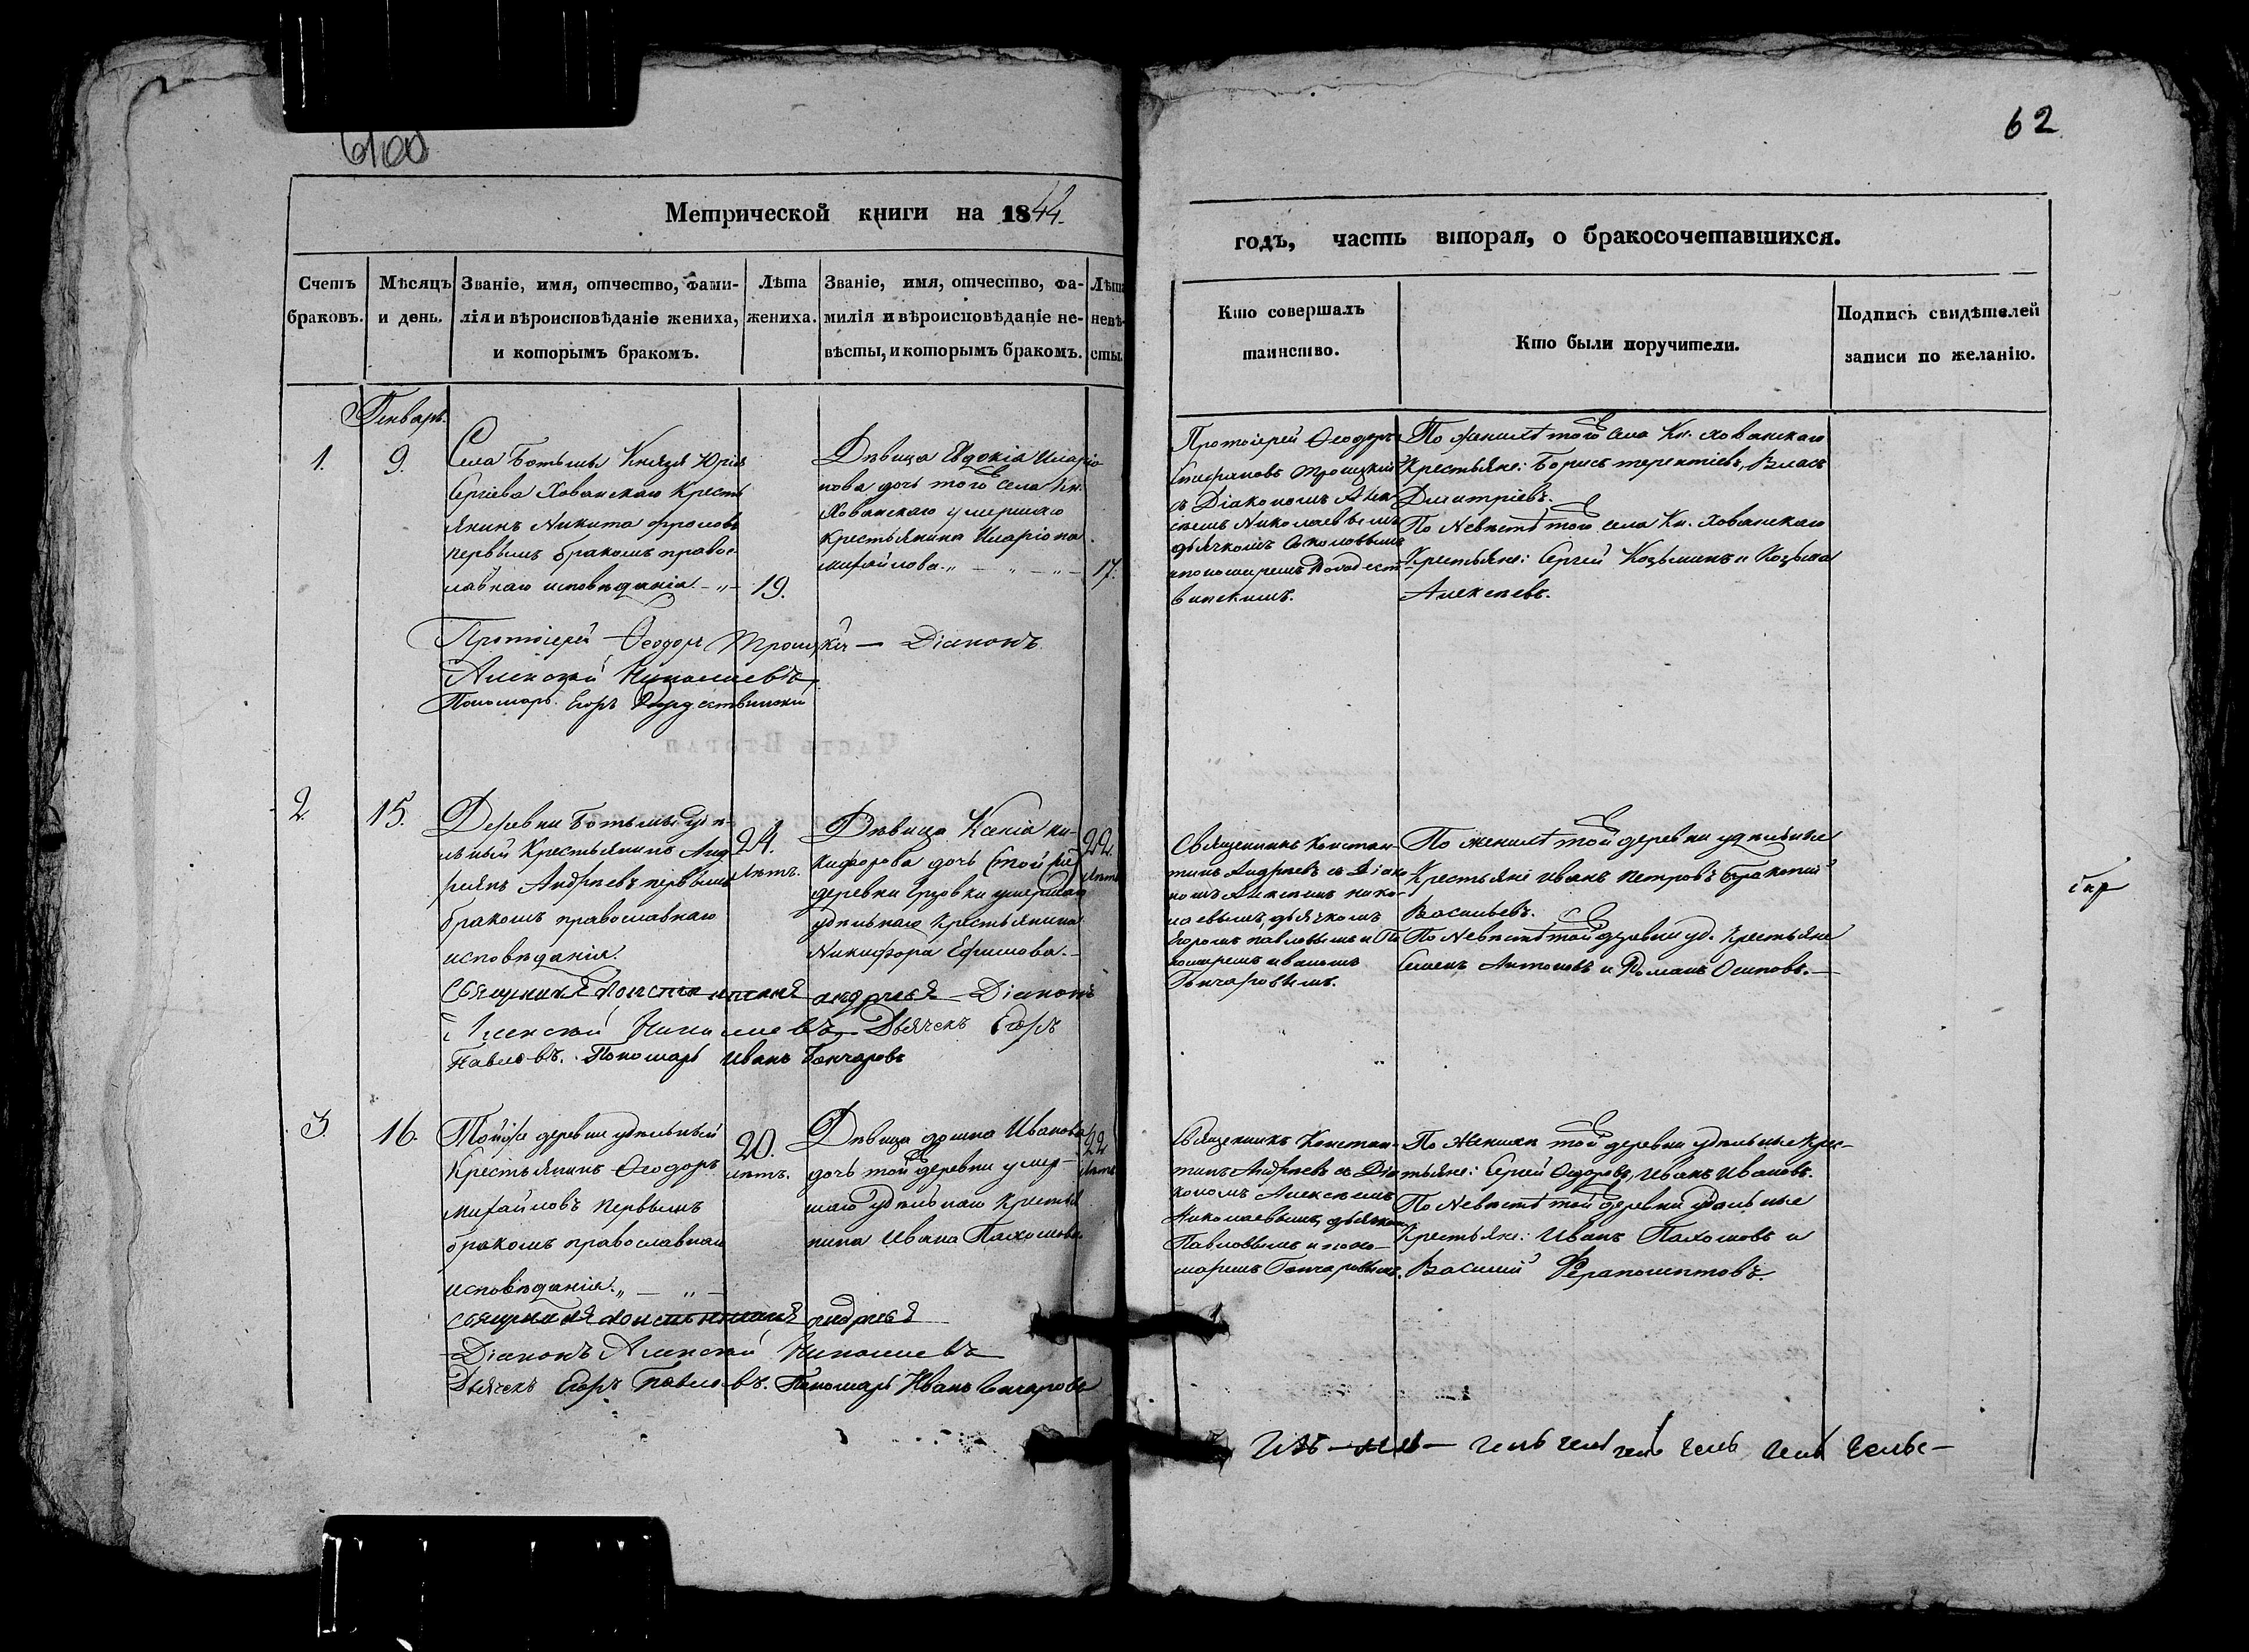 62
Метрической книги на 1844.
годъ, часть вторая, о бракосочетавшихся.
Счетъ браковъ.
Мѣсяцъ и день.
Званіе, имя, отчество, фами-
лія и вѣроисповѣданіе жениха,
и которымъ бракомъ.
Лѣта жениха.
Званіе, имя, отчество, фа-
милія и вѣроисповѣданіе не-
вѣсты, и которымъ бракомъ.
Лѣта невѣ-
сты.
Кто совершалъ
таинство.
Кто были поручители.
Подпись свидѣтелей
записи по желанію.
Генварь.
1.
9.
Села Ботьмы Князя Юрія
Сергіева Хованскаго Кресть
янинъ Никита Фроловъ
первымъ бракомъ правос-
лавнаго исповѣданія
19.
Дѣвица Евдокія Иларіо
нова дочь того же села Кн.
Хованскаго умершаго
крестьянина Иларіона
Михайлова
17.
Протоіерей Ѳеодоръ
Троицкій
съ Діакономъ Але
ксѣемъ Николаевымъ
дьячкомъ Соколовымъ
и пономаремъ Рождест
винскимъ.
По женихѣ того же села Кн. Хованскаго
Крестьяне: Борисъ терентіевъ, Власъ
Дмитріевъ.
По Невѣстѣ того же села Кн. Хованскаго
Крестьяне: Сергѣй Козьминъ и Козьма
Алексѣевъ.
Протоіерей Ѳеодоръ Троицкій — Діаконъ
Алексѣй Николаевъ
Пономарь Егоръ Рождествинскій
2.
15.
Деревни Ботьмы удѣ-
льный Крестьянинъ Анд
реянъ Андреевъ первымъ
бракомъ православнаго
исповѣданія.
24.
лѣтъ.
Дѣвица Ксенія Ни-
кифорова дочь (той же)
деревни умершаго
удѣльнаго Крестьянина
Никифора Ефимова.
22
лѣтъ
Священникъ Констан-
тинъ Андреевъ съ Діако
номъ Алексѣемъ Нико-
лаевымъ, дьячкомъ
Егоромъ Павловымъ и По
номаремъ Иваномъ
Гончаровымъ.
По женихѣ той же деревни удѣльные
Крестьяне Иванъ Петровъ
Васильевъ.
По Невѣстѣ той же деревни уд. Крестьяне
Семенъ Антоновъ и Романъ Осиповъ.
Священникъ Константинъ Андреевъ Діаконъ
Алексѣй Николаевъ Дьячекъ Егоръ
Павловъ. Пономарь Иванъ Гончаровъ
3.
16.
Той же деревни удѣльный
Крестьянинъ Ѳеодоръ
Михайловъ первымъ
бракомъ православнаго
исповѣданія.
20.
лѣтъ.
Дѣвица Домна Иванова
дочь той же деревни умер-
шаго удѣльнаго Крестья
нина Ивана Пахомова
22
лѣтъ
Священникъ Констан-
тинъ Андреевъ съ Діа
кономъ Алексѣемъ
Николаевымъ, дьячкомъ
Павловымъ и поно-
маремъ Гончаровымъ.
По Женихѣ той же деревни удѣльные Крес-
тьяне: Сергѣй Ѳедоровъ, Иванъ Ивановъ.
По Невѣстѣ той же деревни удѣльные
Крестьяне: Иванъ Пахомовъ и
Василій Ферапонтовъ.
Священникъ Константинъ Андреевъ
Діаконъ Алексѣй Николаевъ
Дьячекъ Егоръ Павловъ. Пономарь Иванъ Гончаровъ